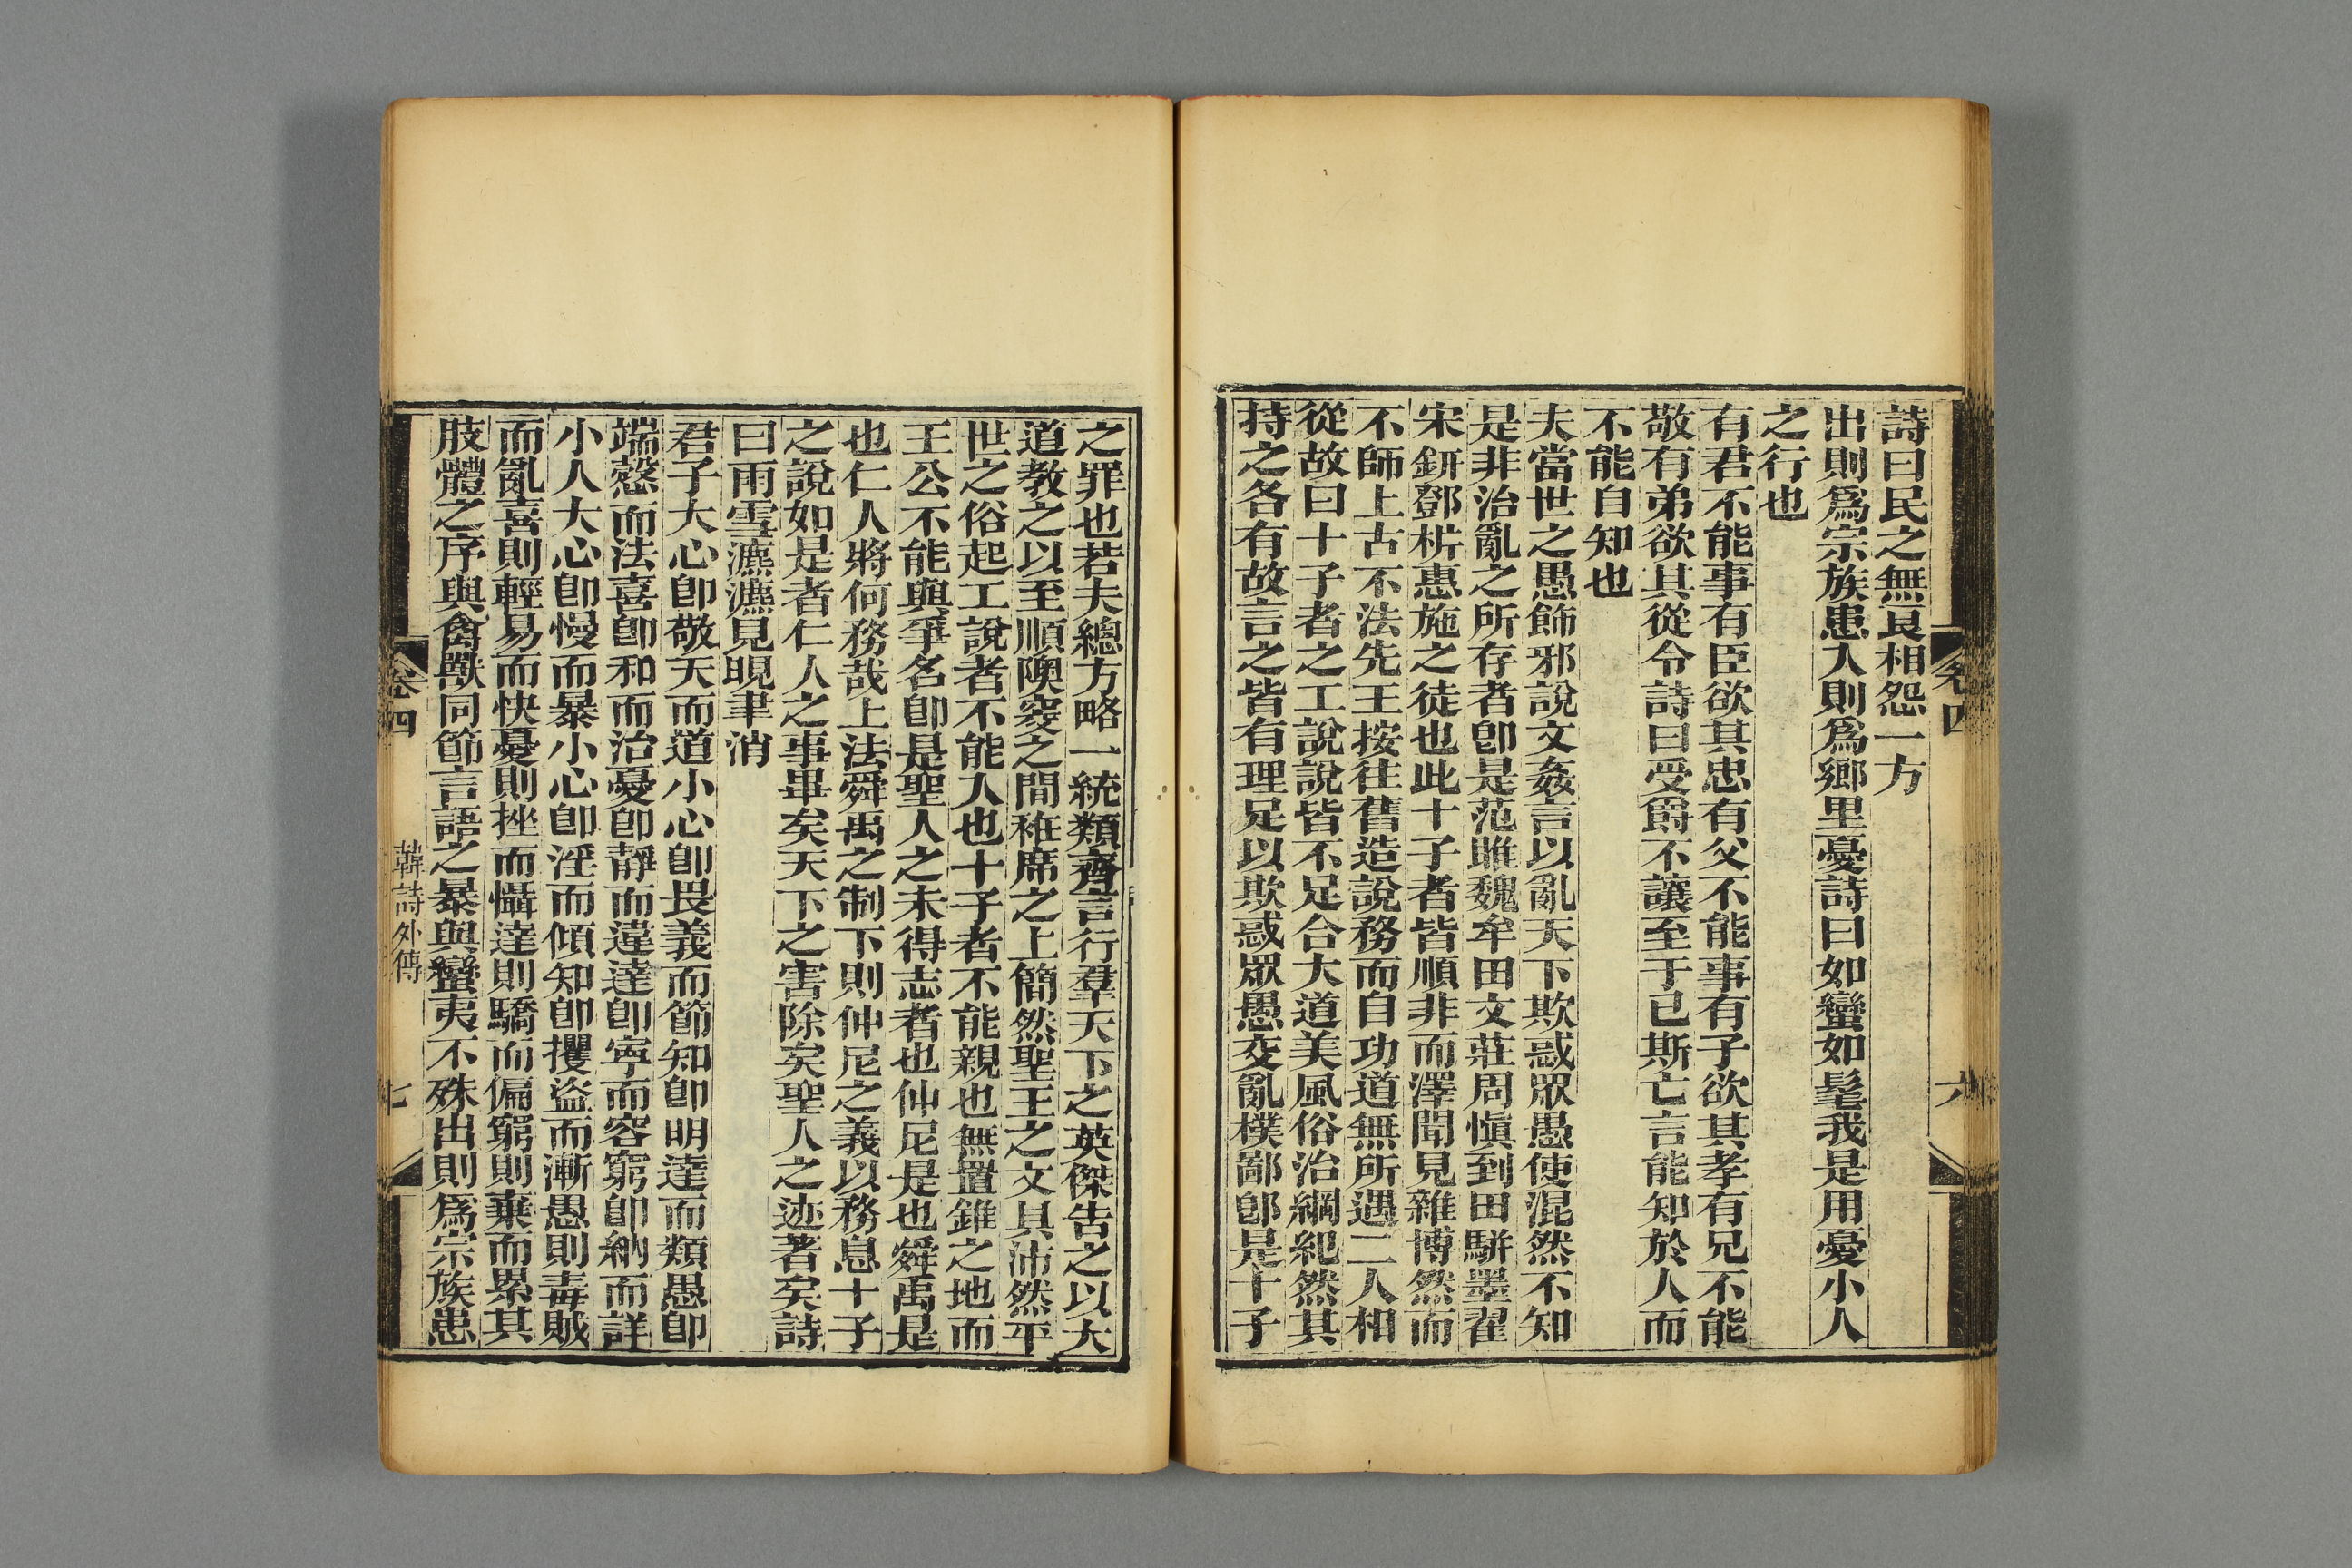 詩曰民之無良相怨一方
出則爲宗族患入則爲鄉里憂詩曰如蠻如髦我是用憂小人
之行也
有君不能事有臣欲其忠有父不能事有子欲其孝有兄不能
敬有弟欲其從令詩曰受爵不讓至于已斯亡言能知於人而
不能自知也
夫當世之愚飾邪說文姦言以亂天下欺惑眾愚使混然不知
是非治亂之所存者卽是范雎魏牟田文莊周愼到田駢墨翟
宋鈃鄧析惠施之徒也此十子者皆順非而澤聞見雜博然而
不師上古不法先王按往舊造說務而自功道無所遇二人相
從故曰十子者之工說說皆不足合大道美風俗治綱紀然其
持之各有故言之皆有理足以欺惑眾愚交亂樸鄙卽是十子
卷四
六
之罪也若夫總方略一統類齊言行羣天下之英傑告之以大
道教之以至順隩窔之間衽席之上簡然聖王之文具沛然平
世之俗起工說者不能入也十子者不能親也無置錐之地而
王公不能與爭名卽是聖人之未得志者也仲尼是也舜禹是
也仁人將何務哉上法舜禹之制下則仲尼之義以務息十子
之說如是者仁人之事畢矣天下之害除矣聖人之迹著矣詩
曰雨雪瀌瀌見晛聿消
君子大心卽敬天而道小心卽畏義而節知卽明達而類愚卽
端愨而法喜卽和而治憂卽靜而違達卽寧而容窮卽納而詳
小人大心卽慢而暴小心卽淫而傾知卽攫盜而漸愚則毒賊
而亂喜則輕易而快憂則挫而懾達則驕而偏窮則棄而累其
肢體之序與禽獸同節言語之暴與蠻夷不殊出則爲宗族患
卷四
韓詩外傳
七